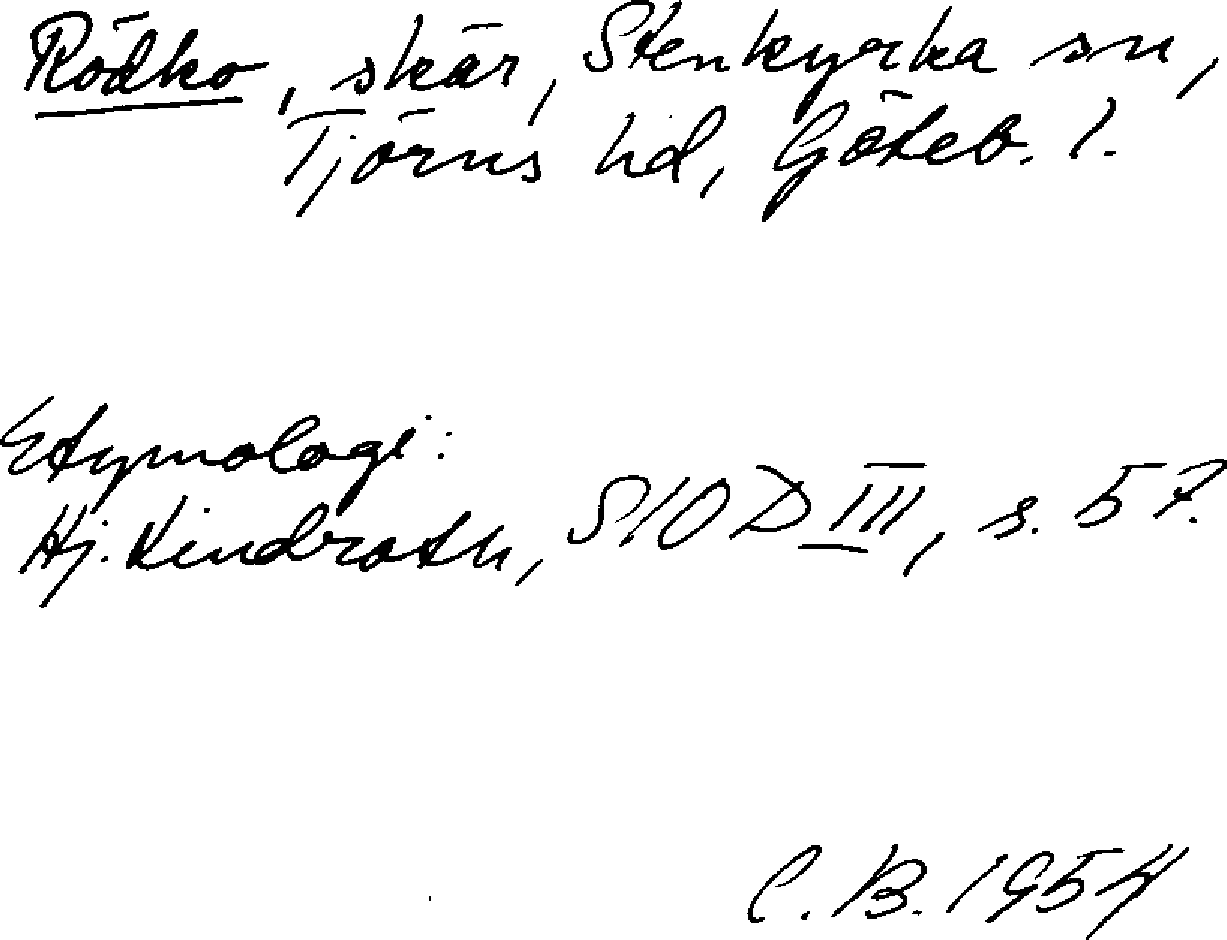 Rödko, skär, Stenkyrka sn,
Tjörns hd, Göteb. l.
Etymologi:
Hj. Lindroth, SIOD III, s. 57.
C. B. 1954